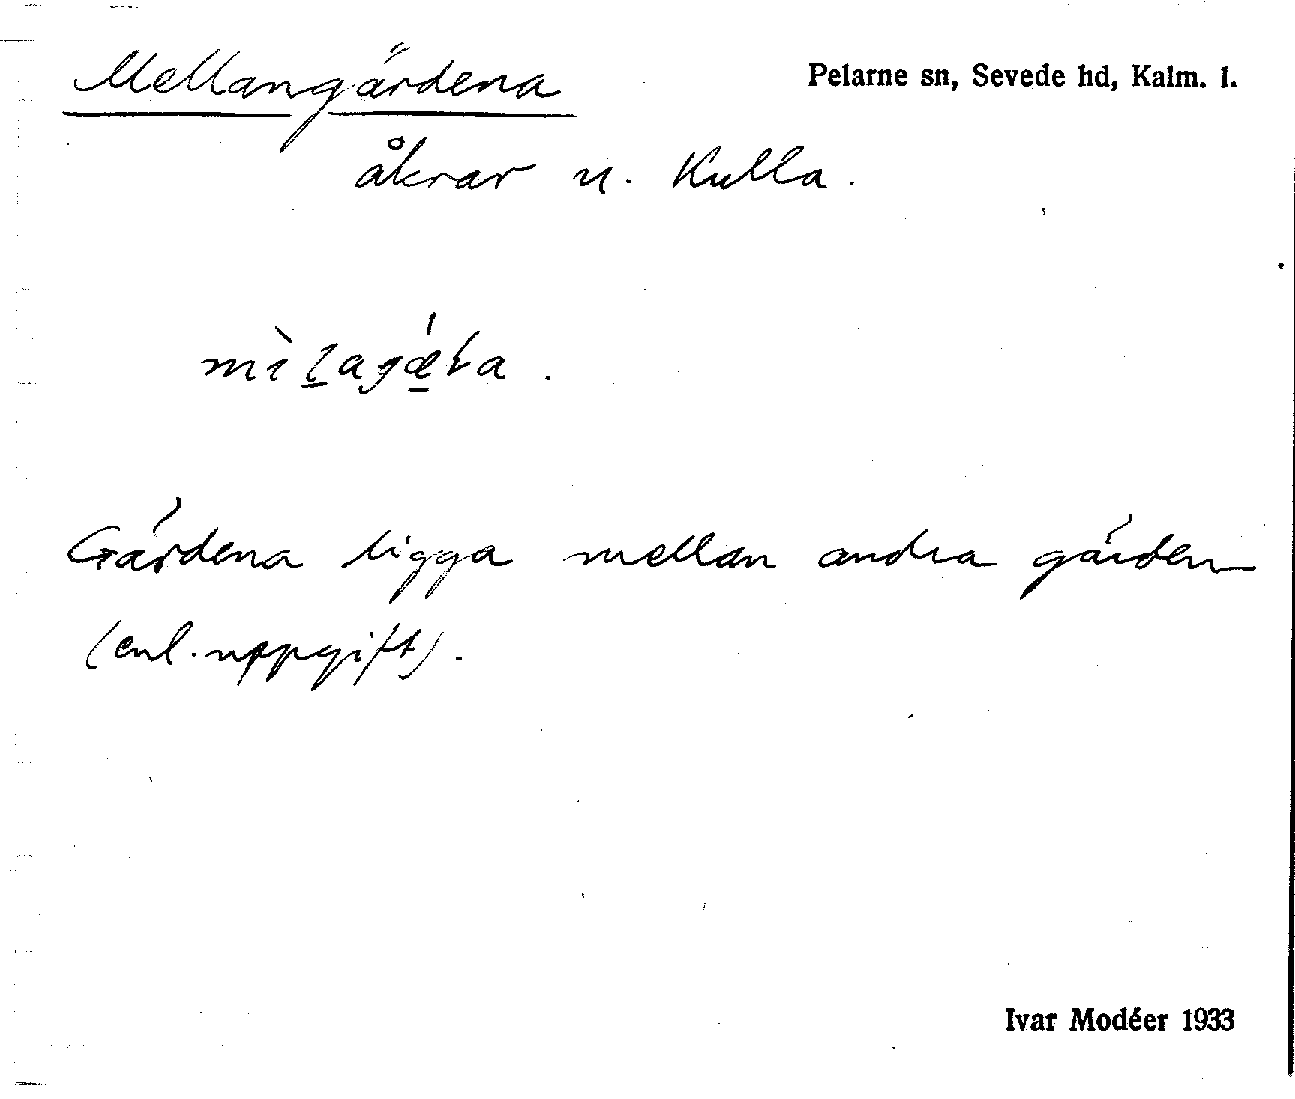 Mellangärdena
Pelarne sn, Sevede hd, Kalm. l.
åkrar u. Kulla.
Gärdena ligga mellan andra gärden
(enl. uppgift).
Ivar Modéer 1933